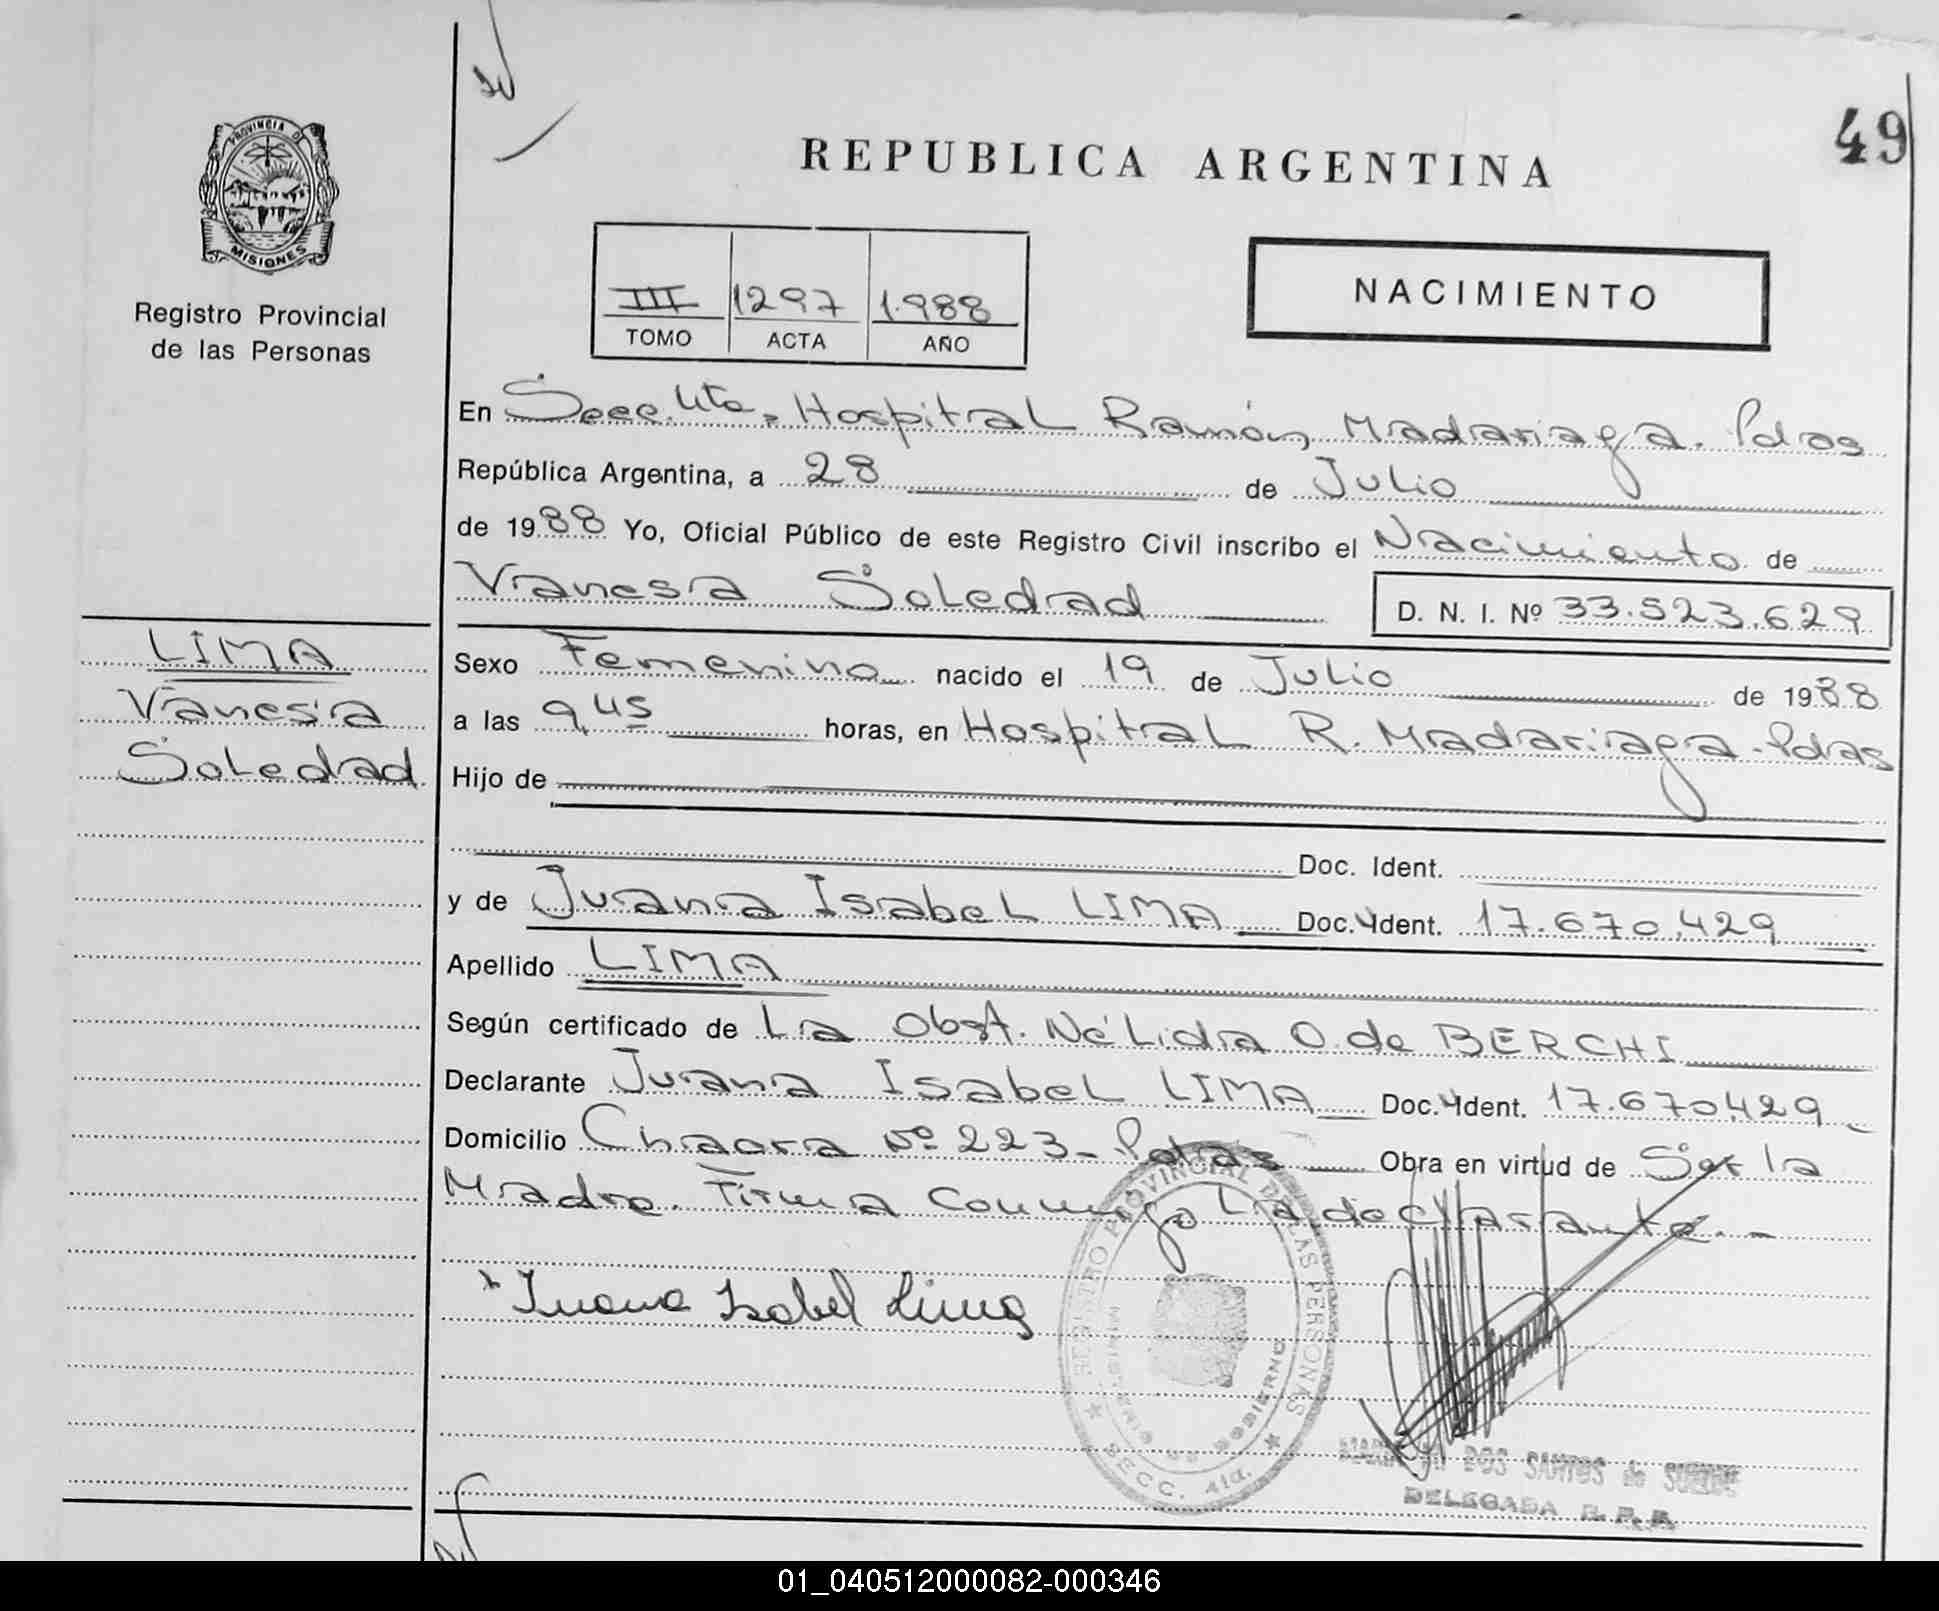 49
REPUBLICA ARGENTINA
PROVINCIA DE
MISIONES
Registro Provincial
de las Personas
III 1297 1.988
TOMO ACTA AÑO
NACIMIENTO
En Secc. 4ta, Hospital Ramón, Madariaga. Pdas
República Argentina, a 28 de Julio
de 1988 Yo, Oficial Público de este Registro Civil inscribo el Nacimiento de
Vanesa Soledad D. N. I. Nº 33.523.629
LIMA
Vanesa
Soledad
Sexo Femenino nacido el 19 de Julio de 1988
a las 9,45 horas, en Hospital R. Madariaga-Pdas
Hijo de
Doc. Ident.
y de Juana Isabel LIMA Doc. Ident. 17.670.429
Apellido LIMA
Según certificado de La Obst. Nélida O. de BERCHI
Declarante Juana Isabel LIMA Doc. Ident. 17.670.429
Domicilio Chacra Nº 223- Pdas Obra en virtud de Ser la
Madre. Firma conmigo La declarante.-
Juana Isabel Lima
REGISTRO PROVINCIAL DE LAS PERSONAS
MINISTERIO DE GOBIERNO
SECC. 4ta.
DOS SANTOS de
DELEGADA R. P. P.
01_040512000082-000346